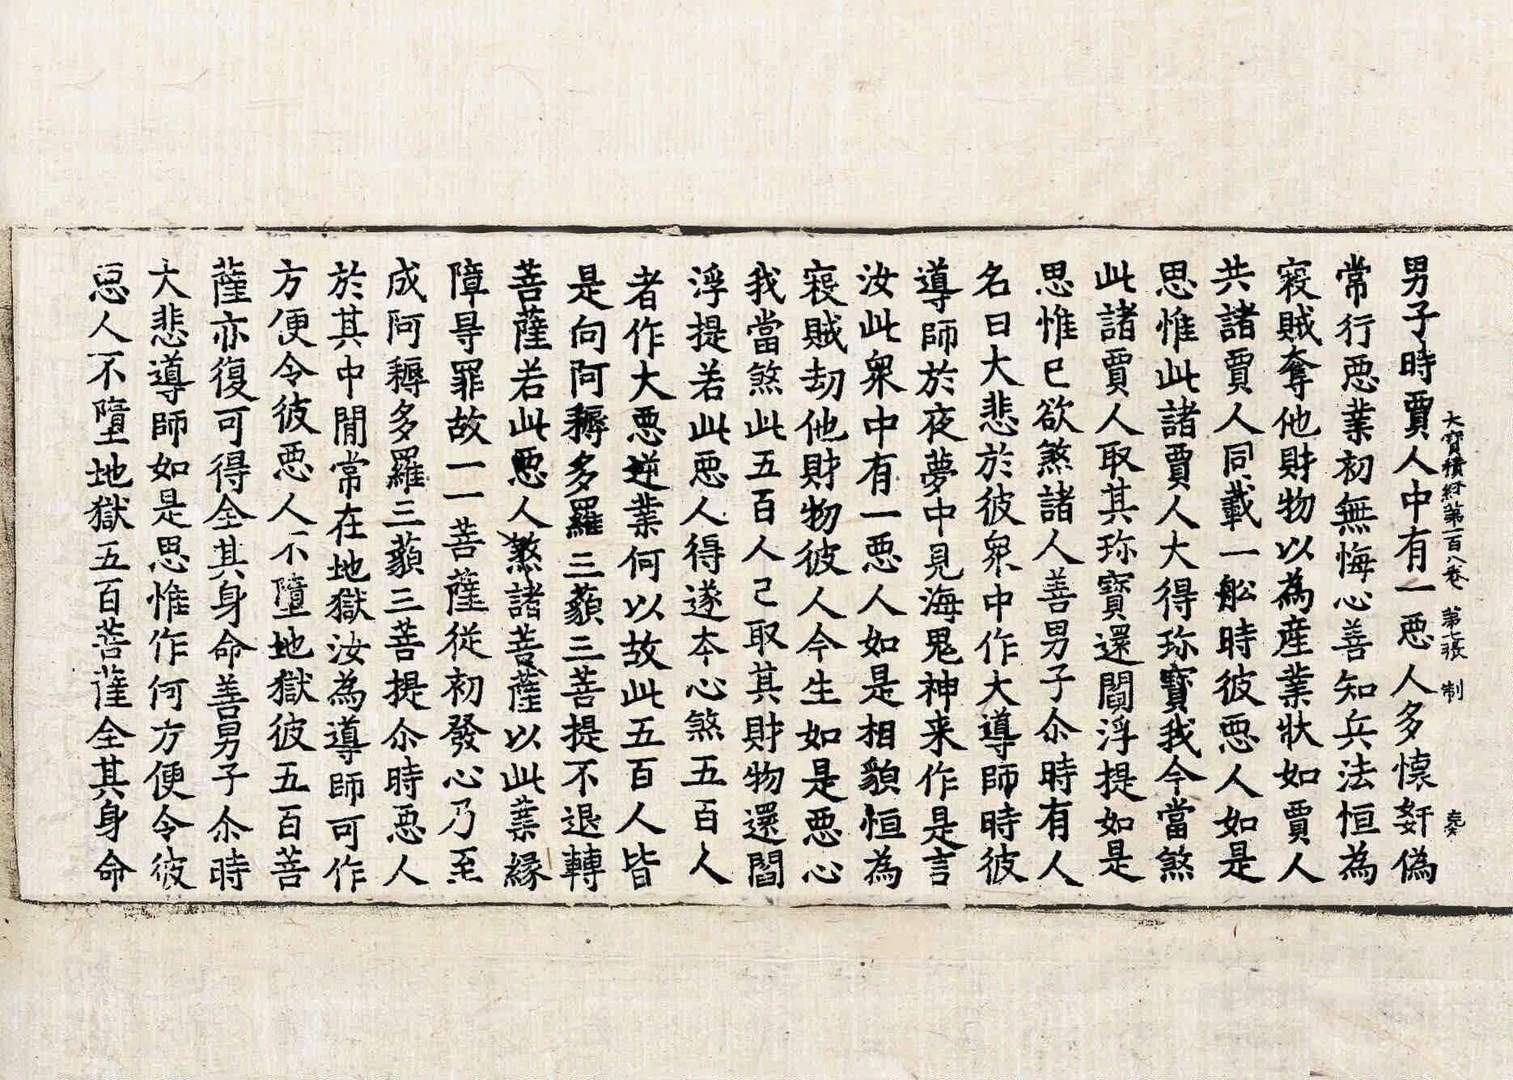 大寶積經第一百八卷 第七張 制
男子時賈人中有一𢙣人多懐姧偽
常行𢙣業初無悔心善知兵法恒為
寇賊奪他財物以為産業状如賈人
共諸賈人同載一舩時彼𢙣人如是
思惟此諸賈人大得珎寶我今當煞
此諸賈人取其珎寶還閻浮提如是
思惟已欲煞諸人善男子尒時有人
名曰大悲於彼衆中作大導師時彼
導師於夜夢中見海鬼神来作是言
汝此衆中有一𢙣人如是相貌恒為
寇賊劫他財物彼人今生如是𢙣心
我當煞此五百人已取其財物還閻
浮提若此𢙣人得遂夲心煞五百人
者作大𢙣逆業何以故此五百人皆
是向阿耨多羅三藐三菩提不退轉
菩薩若此𢙣人煞諸菩薩以此業縁
障㝵罪故一一菩薩従初發心乃至
成阿耨多羅三藐三菩提尒時𢙣人
於其中閒常在地獄汝為導師可作
方便令彼𢙣人不墮地獄彼五百菩
薩亦復可得全其身命善男子尒時
大悲導師如是思惟作何方便令彼
𢙣人不墮地獄五百菩薩全其身命